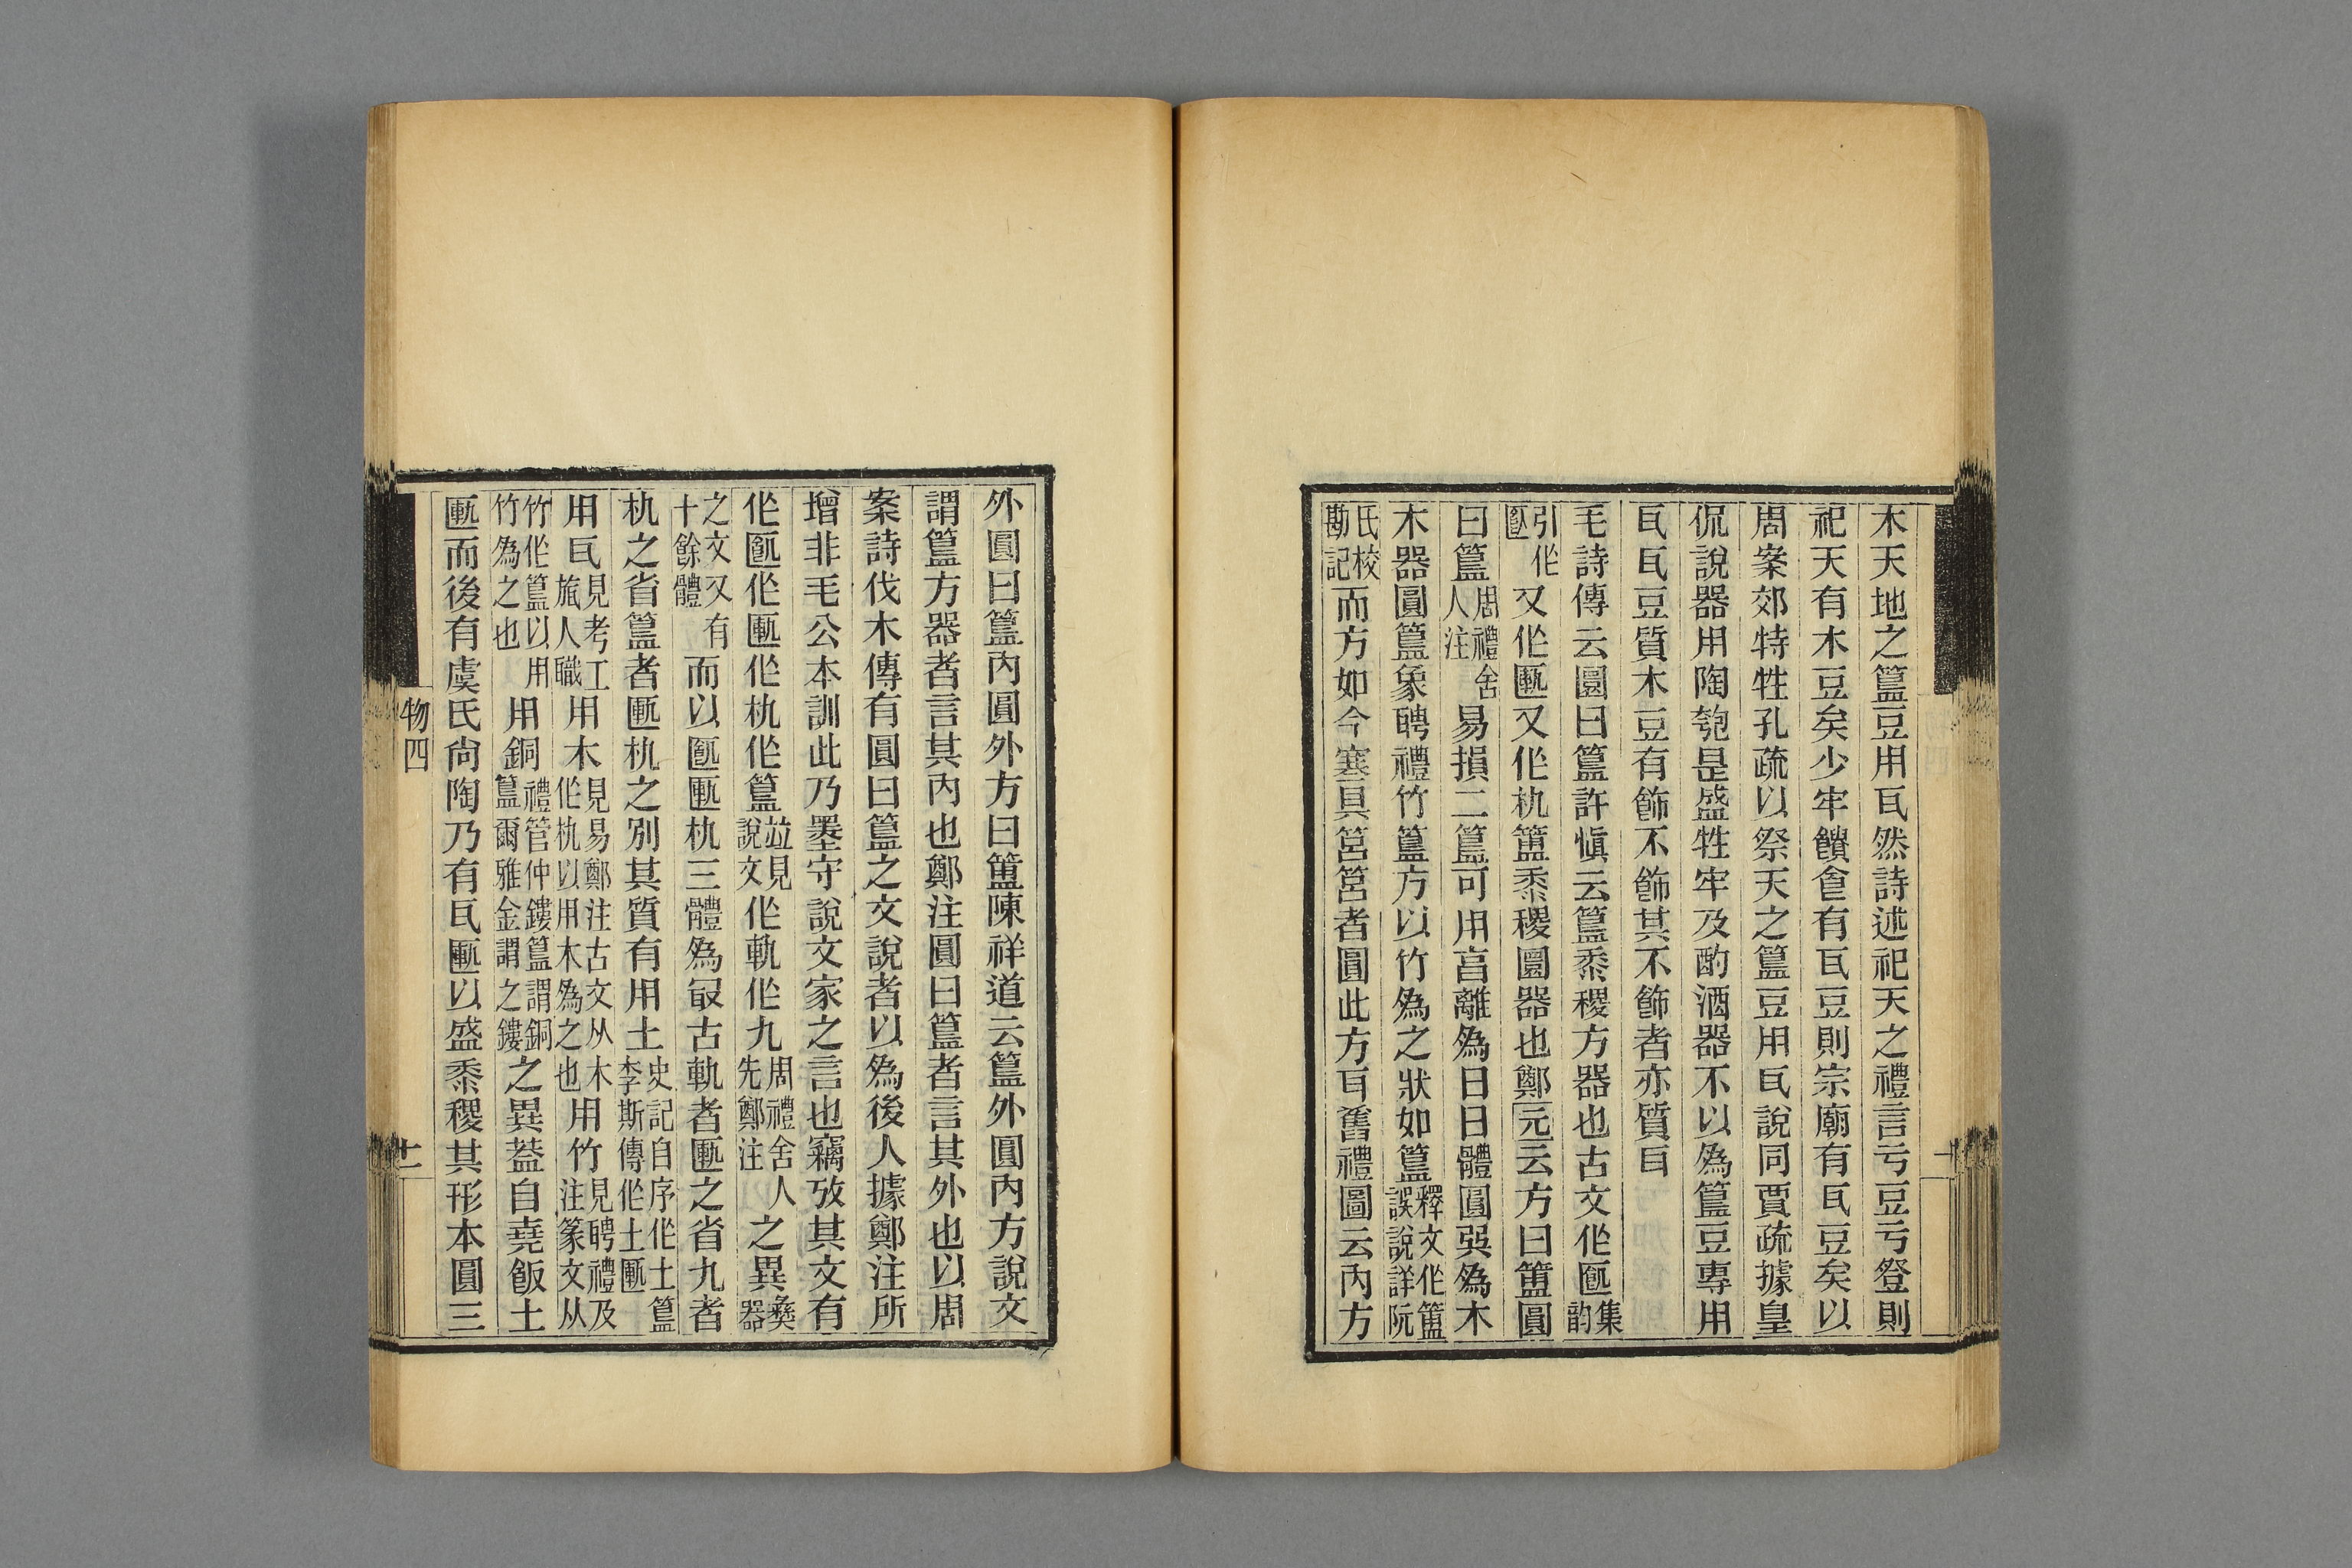 木天地之簋豆用瓦然詩述祀天之禮言亏豆亏豋則
祀天有木豆矣少牢饋食有瓦豆則宗廟有瓦豆矣以
周案郊特牲孔疏以祭天之簋豆用瓦說同賈疏據皇
侃說器用陶匏是盛牲牢及酌酒器不以為簋豆專用
瓦瓦豆質木豆有飾不飾其不飾者亦質耳
毛詩傳云圜曰簋許慎云簋黍稷方器也古文作匭集韵
引作匭又作匭又作朹簠黍稷圜器也鄭元云方曰簠圓
曰簋周禮舍人注易損二簋可用亯離為日日體圓巽為木
木器圓簋象聘禮竹簋方以竹為之狀如簋釋文作簠誤說詳阮
氏校勘記而方如今寒具筥筥者圓此方耳舊禮圖云內方
外圓曰簋內圓外方曰簠陳祥道云簋外圓內方說文
謂簋方器者言其內也鄭注圓曰簋者言其外也以周
案詩伐木傳有圓曰簋之文說者以為後人據鄭注所
增非毛公本訓此乃墨守說文家之言也竊攷其文有
作匭作匭作朹作簋竝見說文作軌作九周禮舍人先鄭注之異彝器
之文又有十餘體而以匭匭朹三體為最古軌者匭之省九者
朹之省簋者匭朹之別其質有用土史記自序作土簋李斯傳作土匭
用瓦見考工旊人職用木見易鄭注古文从木作朹以用木為之也用竹見聘禮及注篆文从
竹作簋以用竹為之也用銅禮管仲鏤簋謂銅簋爾雅金謂之鏤之異葢自堯飯土
匭而後有虞氏尙陶乃有瓦匭以盛黍稷其形本圓三
物四
十二